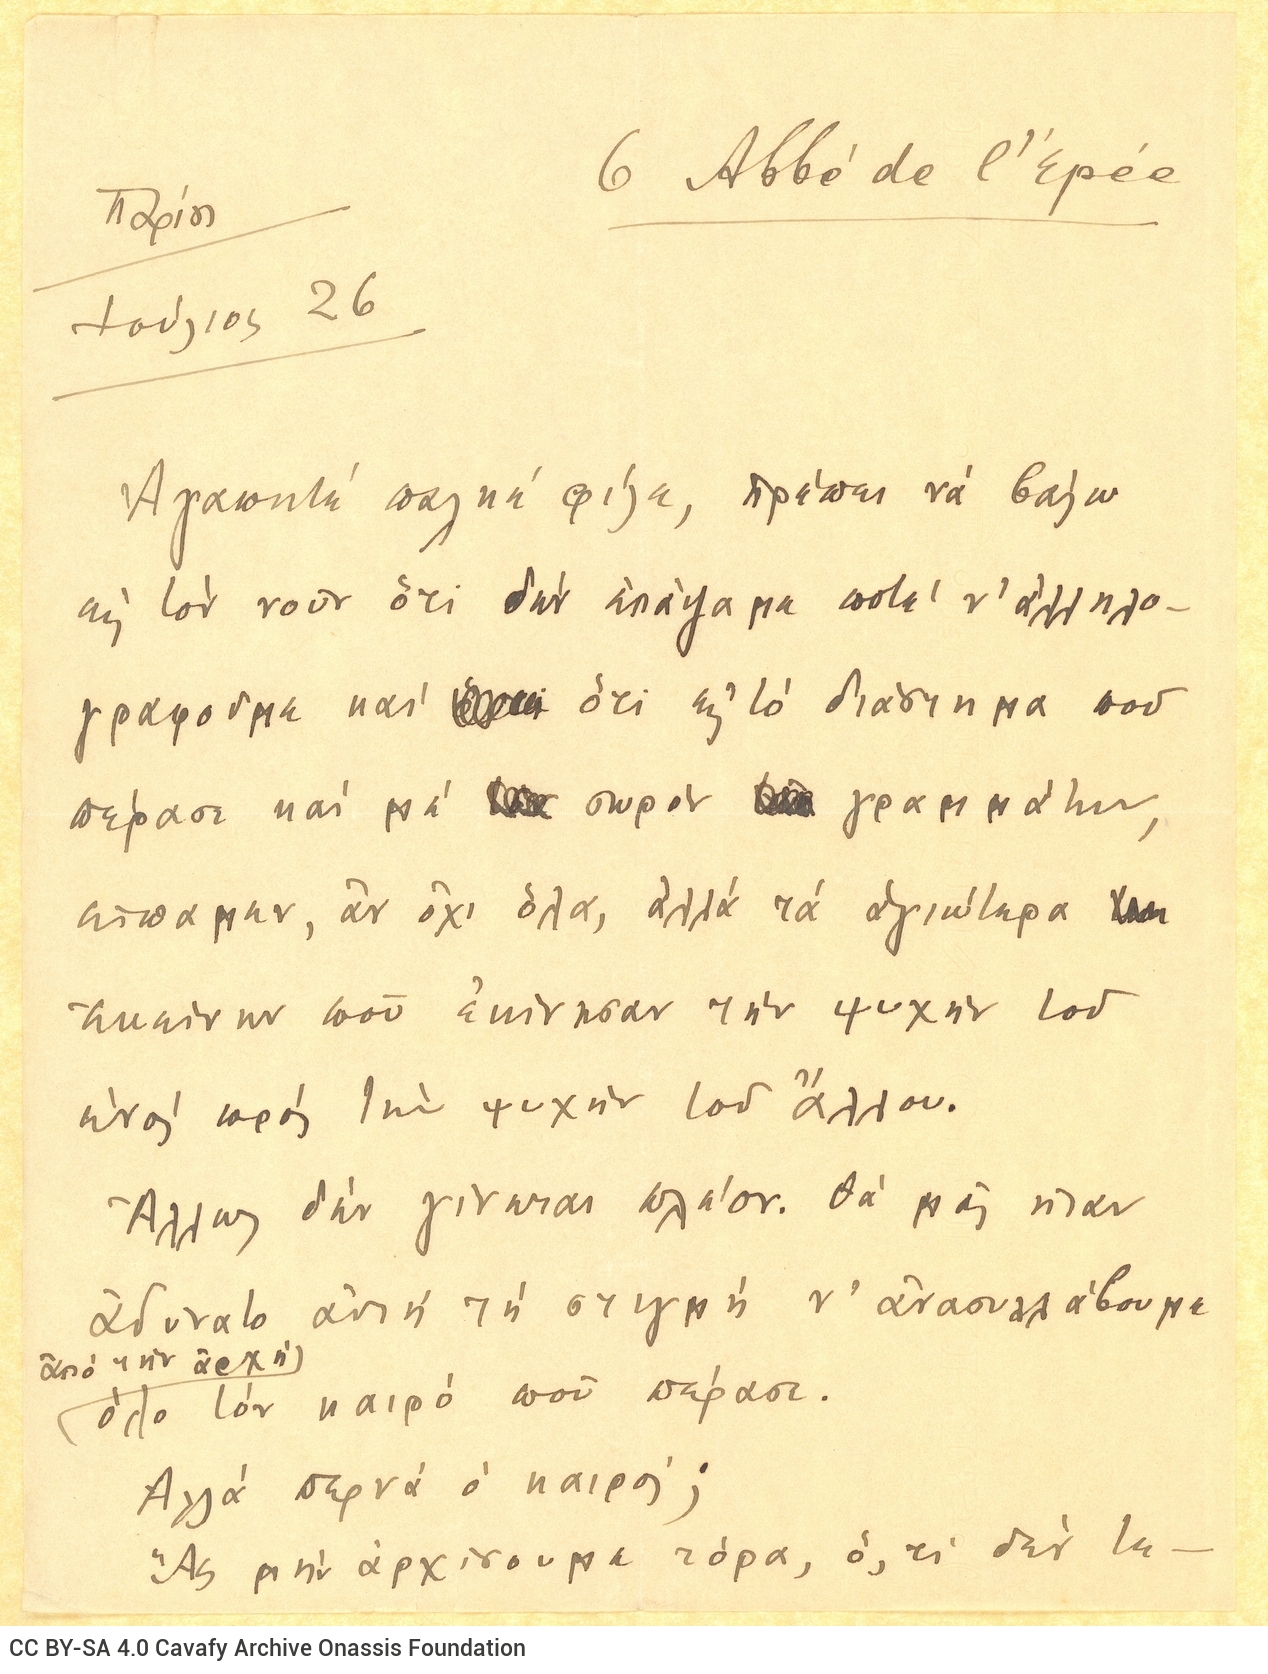 6 Abbé de l'Epée
Παρίσι
Ιούλιος 26
Ἀγαπητέ παληέ φίλε, πρέπει νά βάλω
εἰς τόν νοῦν ὅτι δέν ἐπάψαμε ποτέ ν' ἀλληλο-
γραφοῦμε καί ὅτι εἰς τό διάστημα πού
πέρασε καί μέ σωρόν γραμμάτων,
εἴπαμεν, ἄν ὄχι ὅλα, ἀλλά τά ἁγιώτερα
ἐκείνων πού ἐκίνησαν τήν ψυχήν τοῦ
ἑνός πρός τήν ψυχήν τοῦ ἄλλου.
Ἄλλως δέν γίνεται πλέον. Θά μᾶς ἦταν
ἀδύνατο αὐτή τή στιγμή ν' ἀνασυλλάβουμε
ἀπό τήν ἀρχή
ὅλο τόν καιρό πού πέρασε.
Ἀλλά περνᾶ ὁ καιρός;
Ἄς μήν ἀρχίσουμε τόρα, ὅ,τι δέν τε-
CC BY-SA 4.0 Cavafy Archive Onassis Foundation